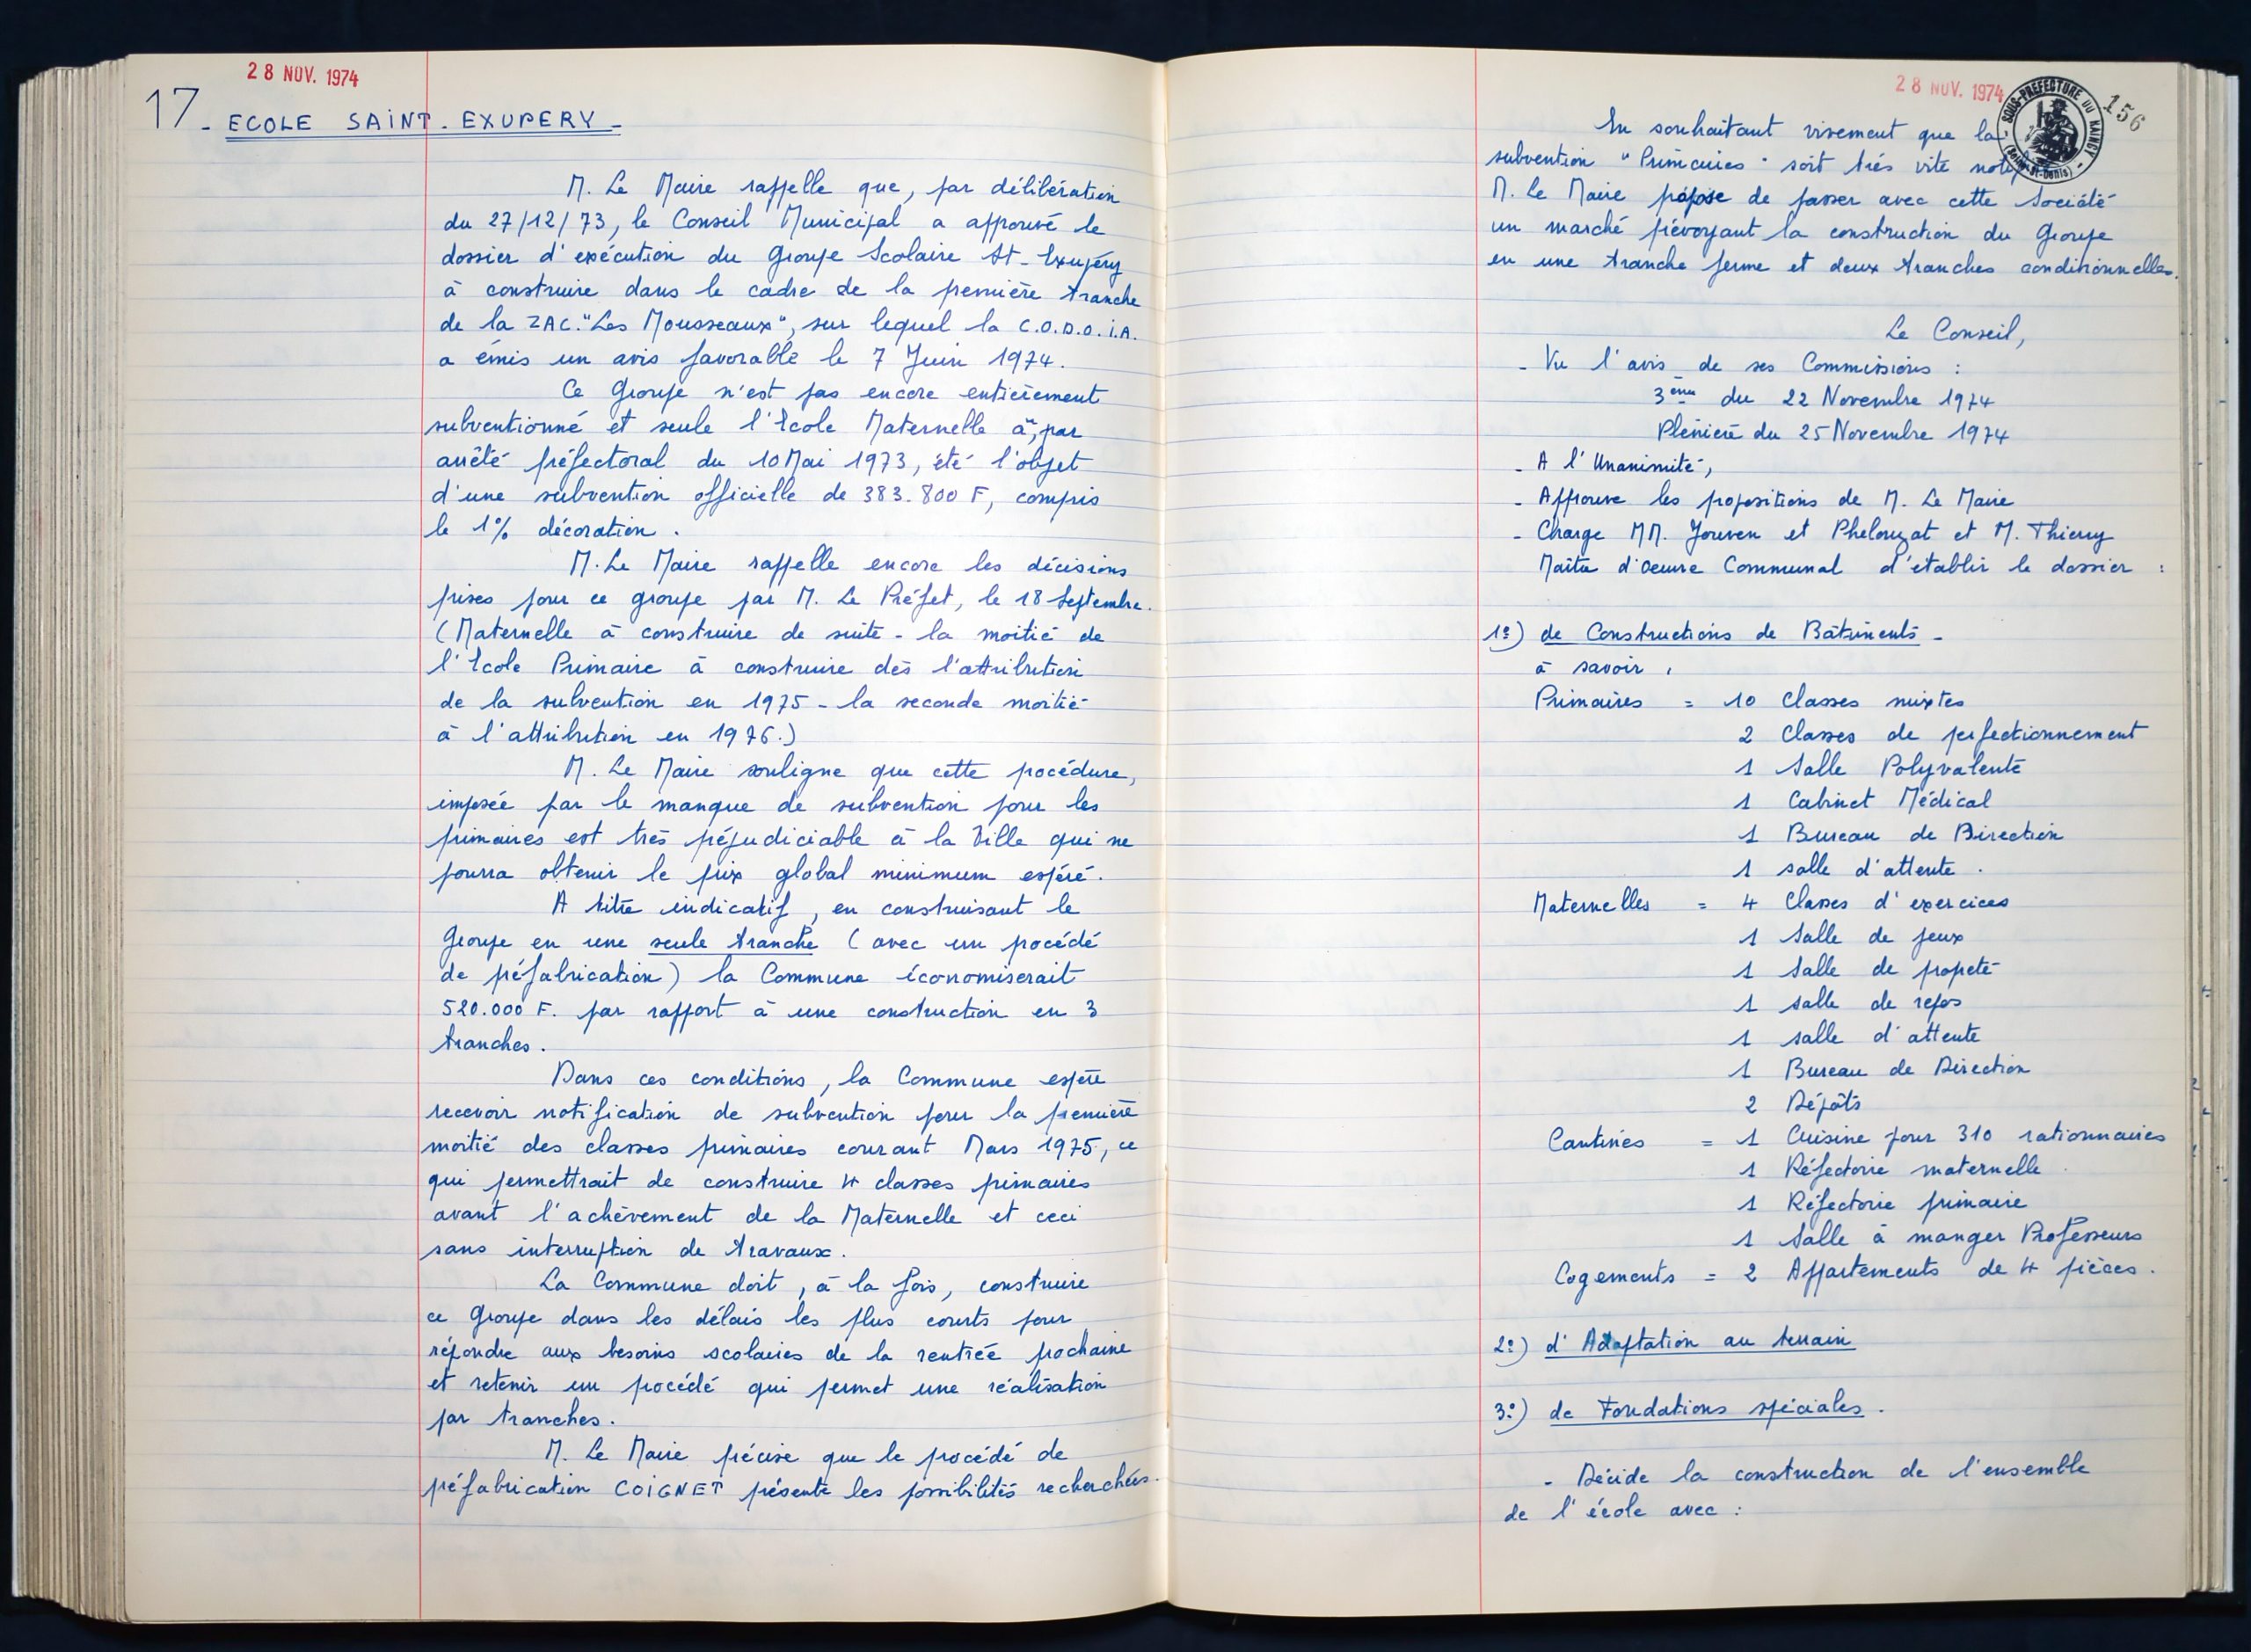 28 NOV. 1974
17 - ECOLE SAINT. EXUPERY -
M. Le Maire rappelle que, par délibération
du 27/12/73, le Conseil Municipal a approuvé le
dossier d'exécution du Groupe Scolaire St-Exupéry
à construire dans le cadre de la première tranche
de la ZAC. "Les Mousseaux", sur lequel la C.O.D.O.I.A.
a émis un avis favorable le 7 Juin 1974.
Ce Groupe n'est pas encore entièrement
subventionné et seule l'Ecole Maternelle a, par
arrêté préfectoral du 10 Mai 1973, été l'objet
d'une subvention officielle de 383.800 F, compris
le 1% décoration.
M. Le Maire rappelle encore les décisions
prises pour ce groupe par M. Le Préfet, le 18 Septembre.
(Maternelle à construire de suite - la moitié de
l'Ecole Primaire à construire dès l'attribution
de la subvention en 1975 - la seconde moitié
à l'attribution en 1976.)
M. Le Maire souligne que cette procédure,
imposée par le manque de subvention pour les
primaires est très préjudiciable à la Ville qui ne
pourra obtenir le prix global minimum espéré.
A titre indicatif, en construisant le
Groupe en une seule tranche (avec un procédé
de préfabrication) la Commune économiserait
520.000 F. par rapport à une construction en 3
tranches.
Dans ces conditions, la Commune espère
recevoir notification de subvention pour la première
moitié des classes primaires courant Mars 1975, ce
qui permettrait de construire 4 classes primaires
avant l'achèvement de la Maternelle et ceci
sans interruption de travaux.
La Commune doit, à la fois, construire
ce Groupe dans les délais les plus courts pour
répondre aux besoins scolaires de la rentrée prochaine
et retenir un procédé qui permet une réalisation
par tranches.
M. Le Maire précise que le procédé de
préfabrication COIGNET présente les possibilités recherchées.
28 NOV. 1974
SOUS-PREFECTURE DU RAINCY
156
En souhaitant vivement que la
subvention "Primaires" soit très vite
M. Le Maire propose de passer avec cette Société
un marché prévoyant la construction du Groupe
en une tranche ferme et deux tranches conditionnelles.
Le Conseil,
- Vu l'avis de ses Commissions :
3ème du 22 Novembre 1974
Plénière du 25 Novembre 1974
- A l'Unanimité,
- Approuve les propositions de M. Le Maire
- Charge MM. Jouven et Phelouzat et M. Thierry
Maître d'oeuvre Communal d'établir le dossier :
1º) de Constructions de Bâtiments -
à savoir,
Primaires = 10 Classes mixtes
2 Classes de perfectionnement
1 Salle Polyvalente
1 Cabinet Médical
1 Bureau de Direction
1 salle d'attente.
Maternelles = 4 Classes d'exercices
1 Salle de jeux
1 Salle de propreté
1 salle de repos
1 salle d'attente
1 Bureau de Direction
2 Dépôts
Cantines = 1 Cuisine pour 310 rationnaires
1 Réfectoire maternelle
1 Réfectoire primaire
1 Salle à manger Professeurs
Logements = 2 Appartements de 4 pièces.
2º) d'Adaptation au terrain
3º) de Fondations spéciales.
- Décide la construction de l'ensemble
de l'école avec :